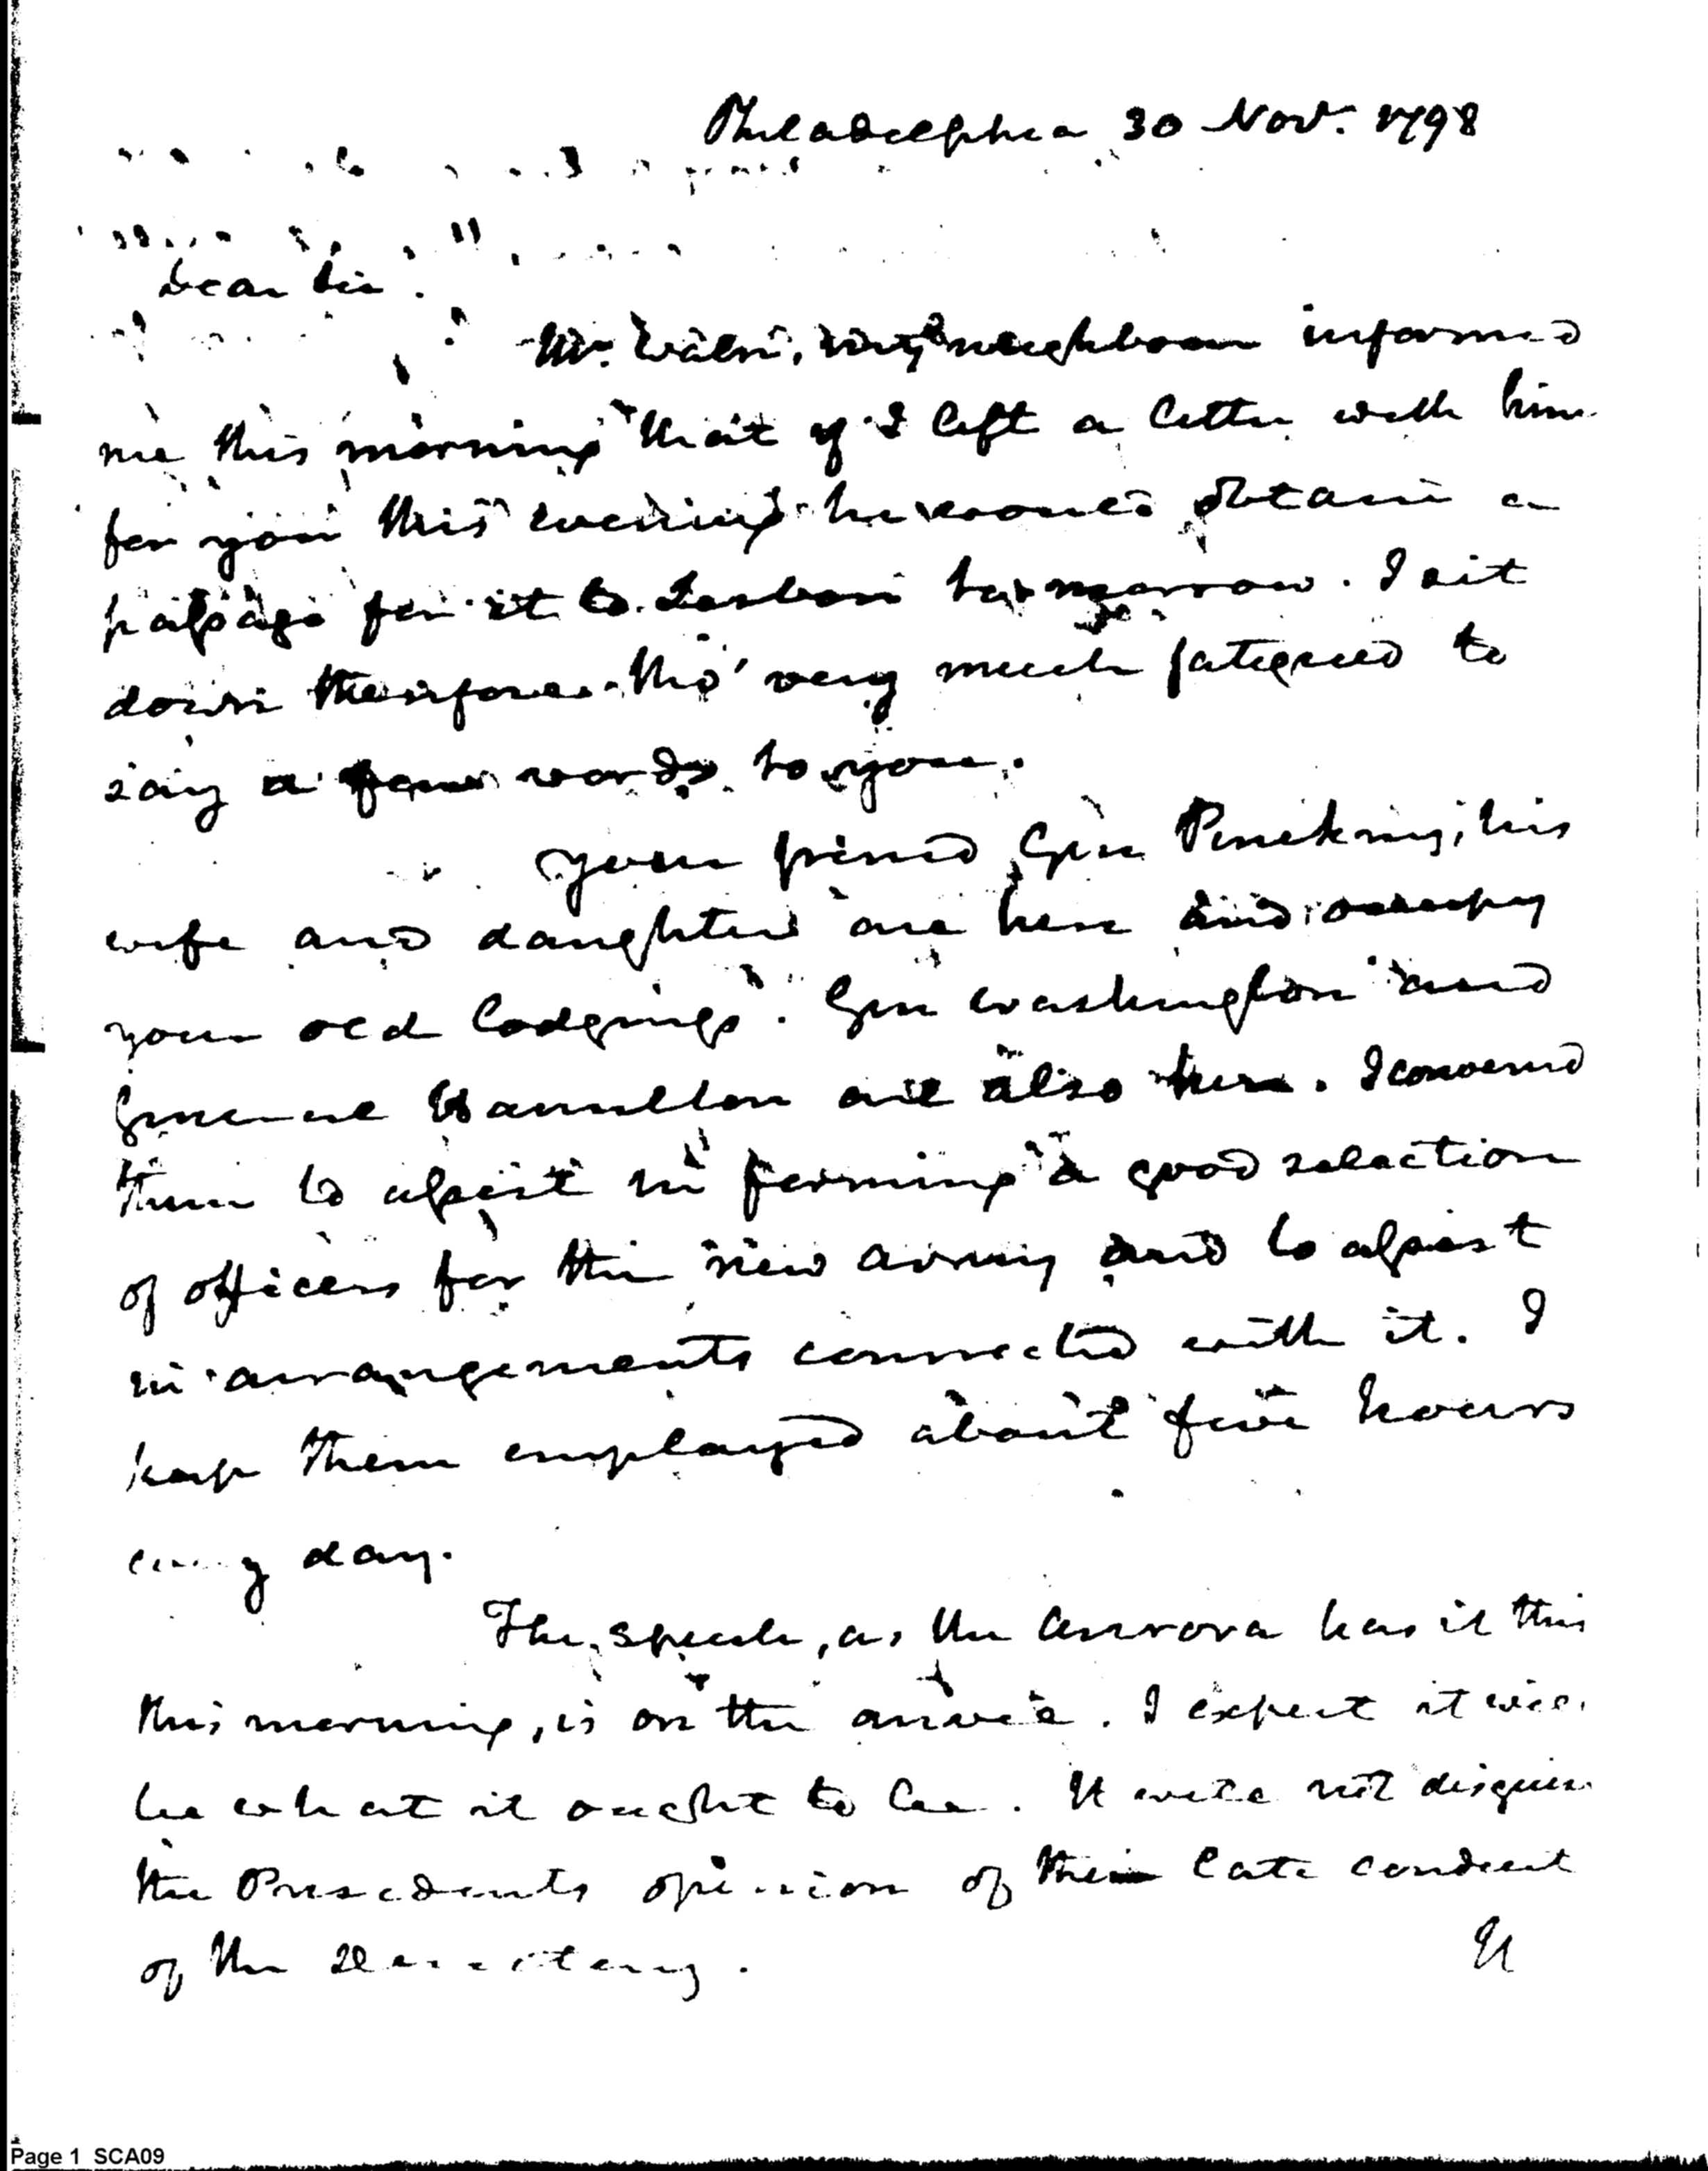 Philadelphia 30 Nov. 1798
Dear Sir.
Mr. my neighbour informed
me this morning that if I left a letter with him
for you this evening he would obtain a
passage for it to Lisbon to morrow. I sit
down therefore tho' very much fatigued to
say a few words to you.
Your friend Gen Pinckney, his
wife and daughter are here and occupy
your old lodgings. Gen Washington and
General Hamilton are also here. I convened
them to assist in forming a good selection
of officers for the new army and to assist
in arrangements connected with it. I
keep them employed about five hours
every day.
The speech, as the Aurora has it this
this morning, is on the anvil. I expect it will
be what it ought to be. It will not disguise
the Presidents opinion of the late conduct
of the Directory.
It
Page 1 SCA09